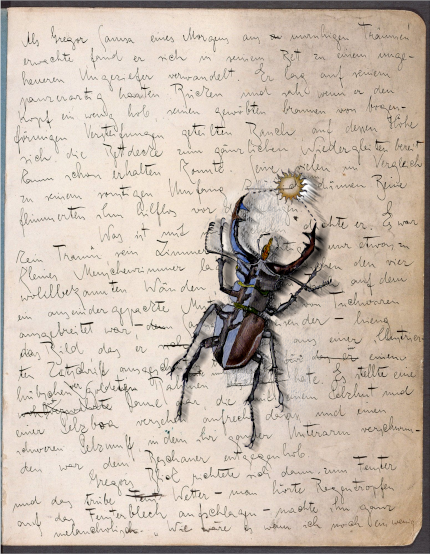 Als Gregor Samsa eines Morgens aus unruhigen Träumen
erwachte fand er sich in seinem Bet zu einem unge-
heueren Ungeziefer verwandelt. Er lag auf seinem
panzerartig harten Rücken und sah wenn er den
Kopf ein wenig hob seinen gewölbten braunen von bogen-
förmigen Versteifungen geteilten Bauch auf dessen Höhe
sich die Bettdecke zum gänzlichen Niedergleiten bereit
kaum schon erhalten konnte. Seine vielen im Vergleich
zu seinem sonstigen Umfang dünnen Beine
flimmerten ihm hilflos vor
Was ist mit chte er. Es war
kein Traum, sein Zimmer nur etwas zu
kleines Menschenzimmer la den vier
wohlbekannten Wänden auf dem
ein auseinandergepackte Mu von Tuchwaren
ausgebreitet war, ender – hieng
das Bild das er aus einer illustrier-
ten Zeitschrift ausgesch einem
hübschen goldenen Rahmen hate. Es stellte eine
Dame dar die Pelzhut und
einer Pelzboa versehen aufrecht dasass und einen
schweren Pelzmuff in dem ihr ganzer Unterarm verschwun-
den war dem Beschauer entgegenhob
Gregors Blick richtete sich dann zum Fenster
und das trübe Wetter – man hörte Regentropfen
auf das Fensterblech aufschlagen – machte ihn ganz
melancholisch. Wie wäre es wenn ich noch ein wenig